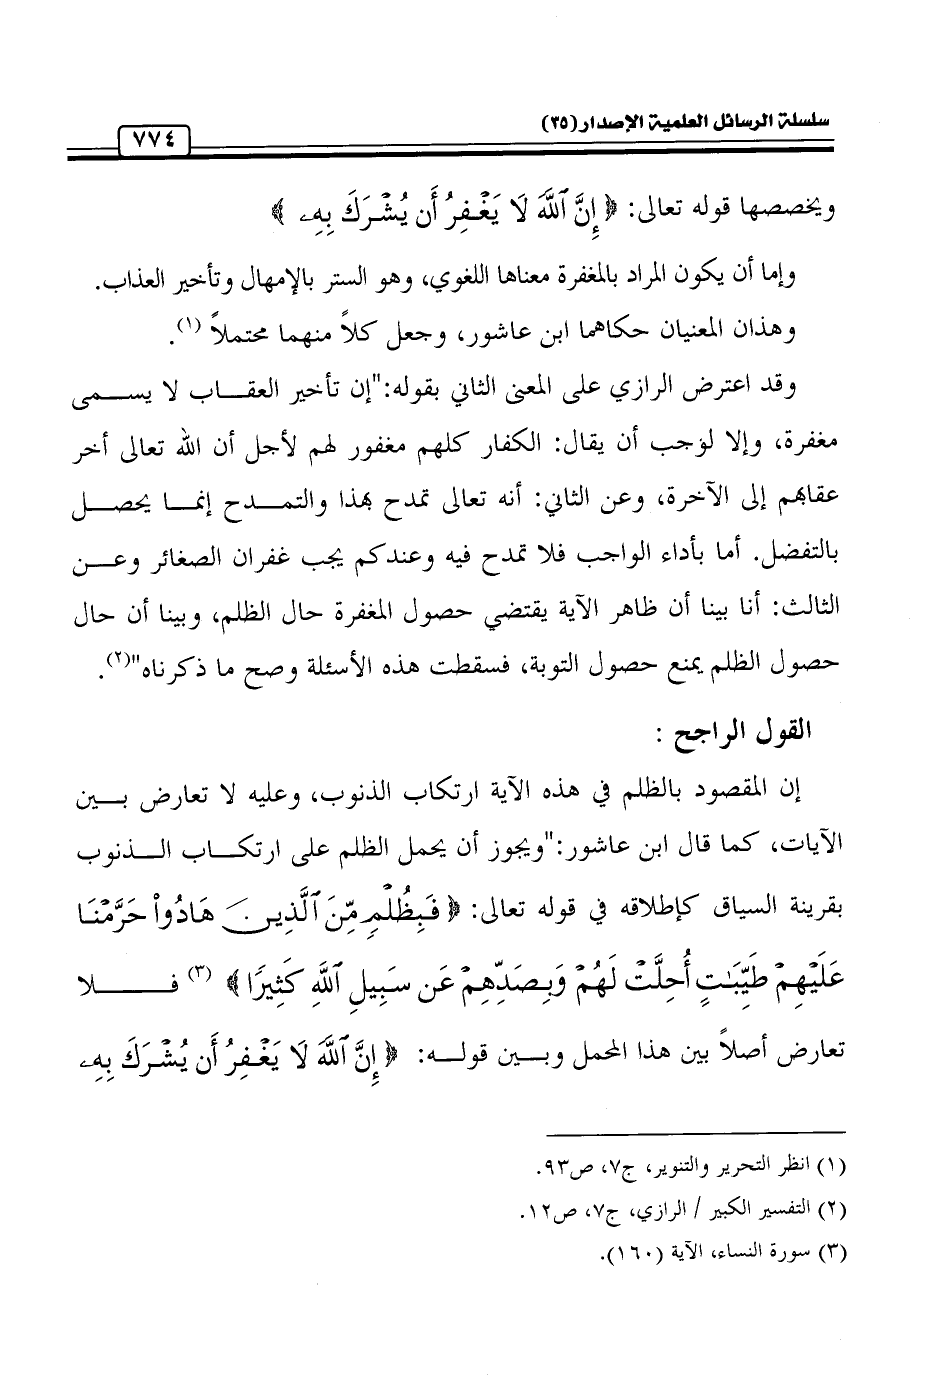 سلسلة الرسائل العلمية الإصدار(٣٥)
٧٧٤
ويخصصها قوله تعالى: ﴿ إِنَّ ٱللَّهَ لَا يَغْفِرُ أَن يُشْرَكَ بِهِۦ ﴾
وإما أن يكون المراد بالمغفرة معناها اللغوي، وهو الستر بالإمهال وتأخير العذاب.
وهذان المعنيان حكاهما ابن عاشور، وجعل كلاً منهما محتملاً (١).
وقد اعترض الرازي على المعنى الثاني بقوله:"إن تأخير العقـاب لا يسـمى
مغفرة، وإلا لوجب أن يقال: الكفار كلهم مغفور لهم لأجل أن الله تعالى أخر
عقابهم إلى الآخرة، وعن الثاني: أنه تعالى تمدح بهذا والتمـدح إنمـا يحصـل
بالتفضل. أما بأداء الواجب فلا تمدح فيه وعندكم يجب غفران الصغائر وعـن
الثالث: أنا بينا أن ظاهر الآية يقتضي حصول المغفرة حال الظلم، وبينا أن حال
حصول الظلم يمنع حصول التوبة، فسقطت هذه الأسئلة وصح ما ذكرناه"(٢).
القول الراجح :
إن المقصود بالظلم في هذه الآية ارتكاب الذنوب، وعليه لا تعارض بـين
الآيات، كما قال ابن عاشور:"ويجوز أن يحمل الظلم على ارتكـاب الـذنوب
بقرينة السياق كإطلاقه في قوله تعالى: ﴿ فَبِظُلْمٍ مِّنَ ٱلَّذِينَ هَادُواْ حَرَّمْنَا
عَلَيْهِمْ طَيِّبَٰتٍ أُحِلَّتْ لَهُمْ وَبِصَدِّهِمْ عَن سَبِيلِ ٱللَّهِ كَثِيرًا ﴾ (٣) فـلا
تعارض أصلاً بين هذا المحمل وبـين قولـه: ﴿ إِنَّ ٱللَّهَ لَا يَغْفِرُ أَن يُشْرَكَ بِهِۦ
(١) انظر التحرير والتنوير، ج٧، ص٩٣.
(٢) التفسير الكبير / الرازي، ج٧، ص١٢.
(٣) سورة النساء، الآية (١٦٠).